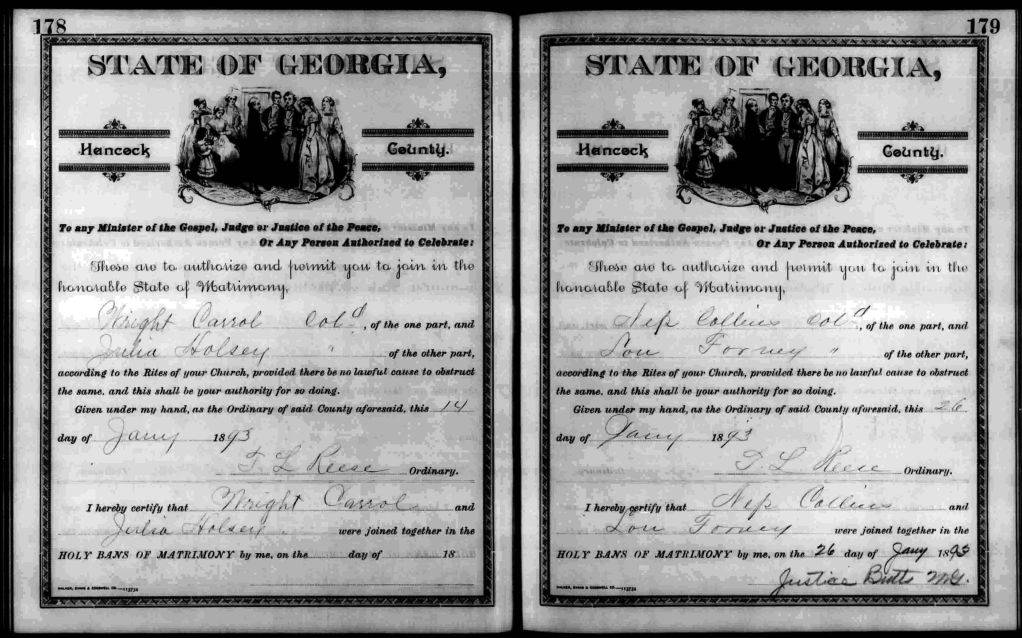 178
STATE OF GEORGIA,
Hancock County.
To any Minister of the Gospel, Judge or Justice of the Peace,
Or Any Person Authorized to Celebrate:
These are to authorize and permit you to join in the
honorable State of Matrimony,
Wright Carrol Cold, of the one part, and
Julia Holsey " of the other part,
according to the Rites of your Church, provided there be no lawful cause to obstruct
the same, and this shall be your authority for so doing.
Given under my hand, as the Ordinary of said County aforesaid, this 14
day of Jany 1893
T L Reese Ordinary.
I hereby certify that Wright Carrol and
Julia Holsey were joined together in the
HOLY BANS OF MATRIMONY by me, on the day of 18
179
STATE OF GEORGIA,
Hancock County.
To any Minister of the Gospel, Judge or Justice of the Peace,
Or Any Person Authorized to Celebrate:
These are to authorize and permit you to join in the
honorable State of Matrimony,
Collins Cold, of the one part, and
Lou " of the other part,
according to the Rites of your Church, provided there be no lawful cause to obstruct
the same, and this shall be your authority for so doing.
Given under my hand, as the Ordinary of said County aforesaid, this 26
day of Jany 1893
T L Reese Ordinary.
I hereby certify that Collins and
Lou were joined together in the
HOLY BANS OF MATRIMONY by me, on the 26 day of Jany 1893
Justice Butts M.G.